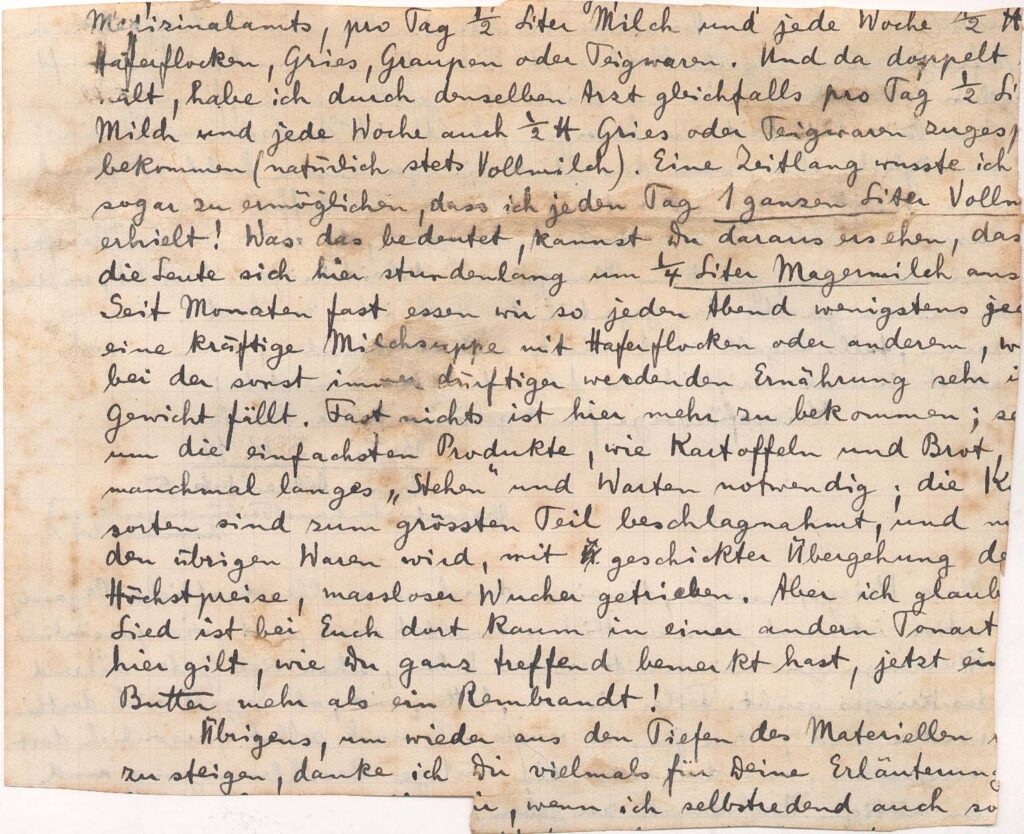 Medizinalamts, pro Tag ½ Liter Milch und jede Woche ½ ℔
Haferflocken, Gries, Graupen oder Teigwaren. Und da doppelt
hält, habe ich durch denselben Arzt gleichfalls pro Tag ½ Li
Milch und jede Woche auch ½ ℔ Gries oder Teigwaren zugesp
bekommen (natürlich stets Vollmilch). Eine Zeitlang wusste ich
sogar zu ermöglichen, dass ich jeden Tag 1 ganzen Liter Vollm
erhielt! Was das bedeutet, kannst Du daraus ersehen, das
die Leute sich hier stundenlang um ¼ Liter Magermilch ans
Seit Monaten fast essen wir so jeden Abend wenigstens je
eine kräftige Milchsuppe mit Haferflocken oder anderem, w
bei der sonst immer dürftiger werdenden Ernährung sehr i
Gewicht fällt. Fast nichts ist hier mehr zu bekommen; se
um die einfachsten Produkte, wie Kartoffeln und Brot,
manchmal langes „Stehen" und Warten notwendig; die K
sorten sind zum grössten Teil beschlagnahmt, und m
den übrigen Waren wird, mit geschickter Übergehung de
Höchstpreise, massloser Wucher getrieben. Aber ich glaub
Lied ist bei Euch dort kaum in einer andern Tonart
hier gilt, wie Du ganz treffend bemerkt hast, jetzt ein
Butter mehr als ein Rembrandt!
Übrigens, um wieder aus den Tiefen des Materiellen
zu steigen, danke ich Dir vielmals für Deine Erläuterun
, wenn ich selbstredend auch so